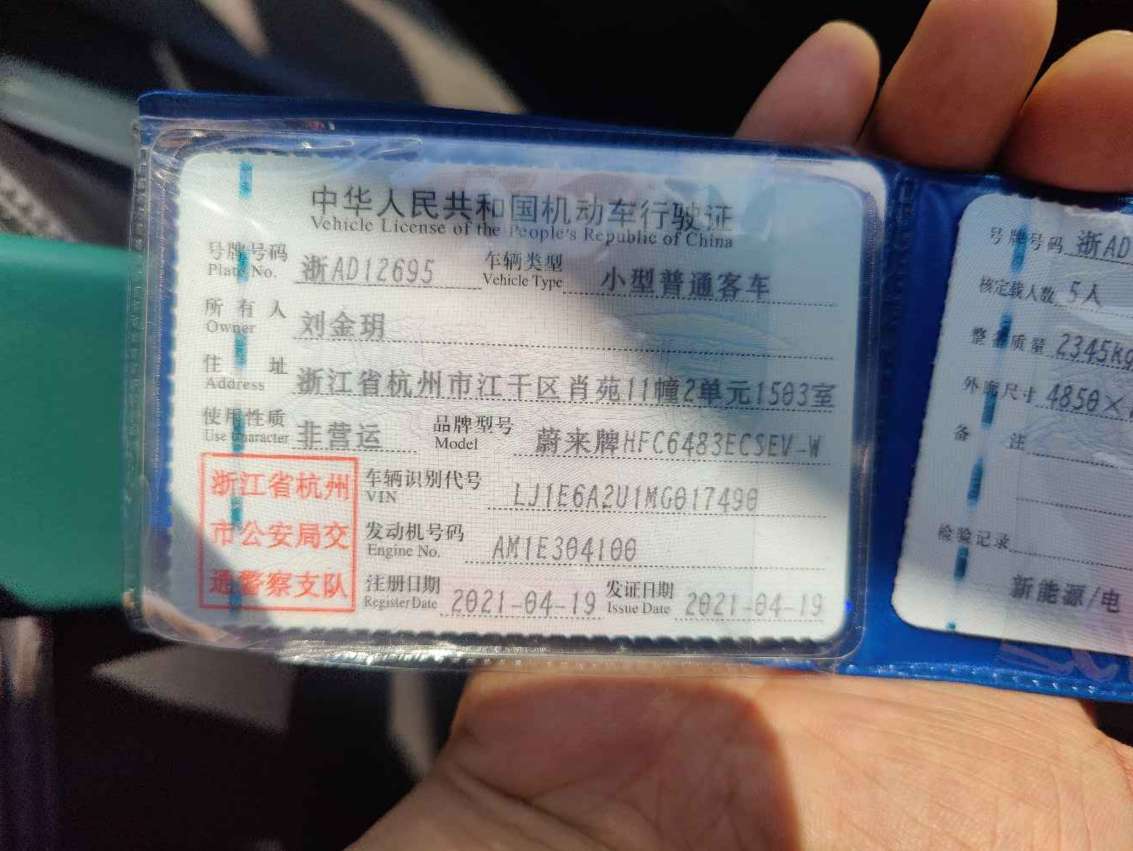 中华人民共和国机动车行驶证
Vehicle License of the People's Republic of China
号牌号码 浙AD12695 车辆类型 小型普通客车
Plate No. Vehicle Type
所有人 刘金玥
Owner
住址 浙江省杭州市江干区肖苑11幢2单元1503室
Address
使用性质 非营运 品牌型号 蔚来牌HFC6483ECSEV-W
Use Character Model
浙江省杭州
市公安局交
通警察支队
车辆识别代号 LJ1E6A2U1MG017490
VIN
发动机号码 AM1E304100
Engine No.
注册日期 2021-04-19 发证日期 2021-04-19
Register Date Issue Date
号牌号码 浙AD
核定载人数 5人
整备质量 2345kg
外廓尺寸 4850×
备注
检验记录
新能源/电